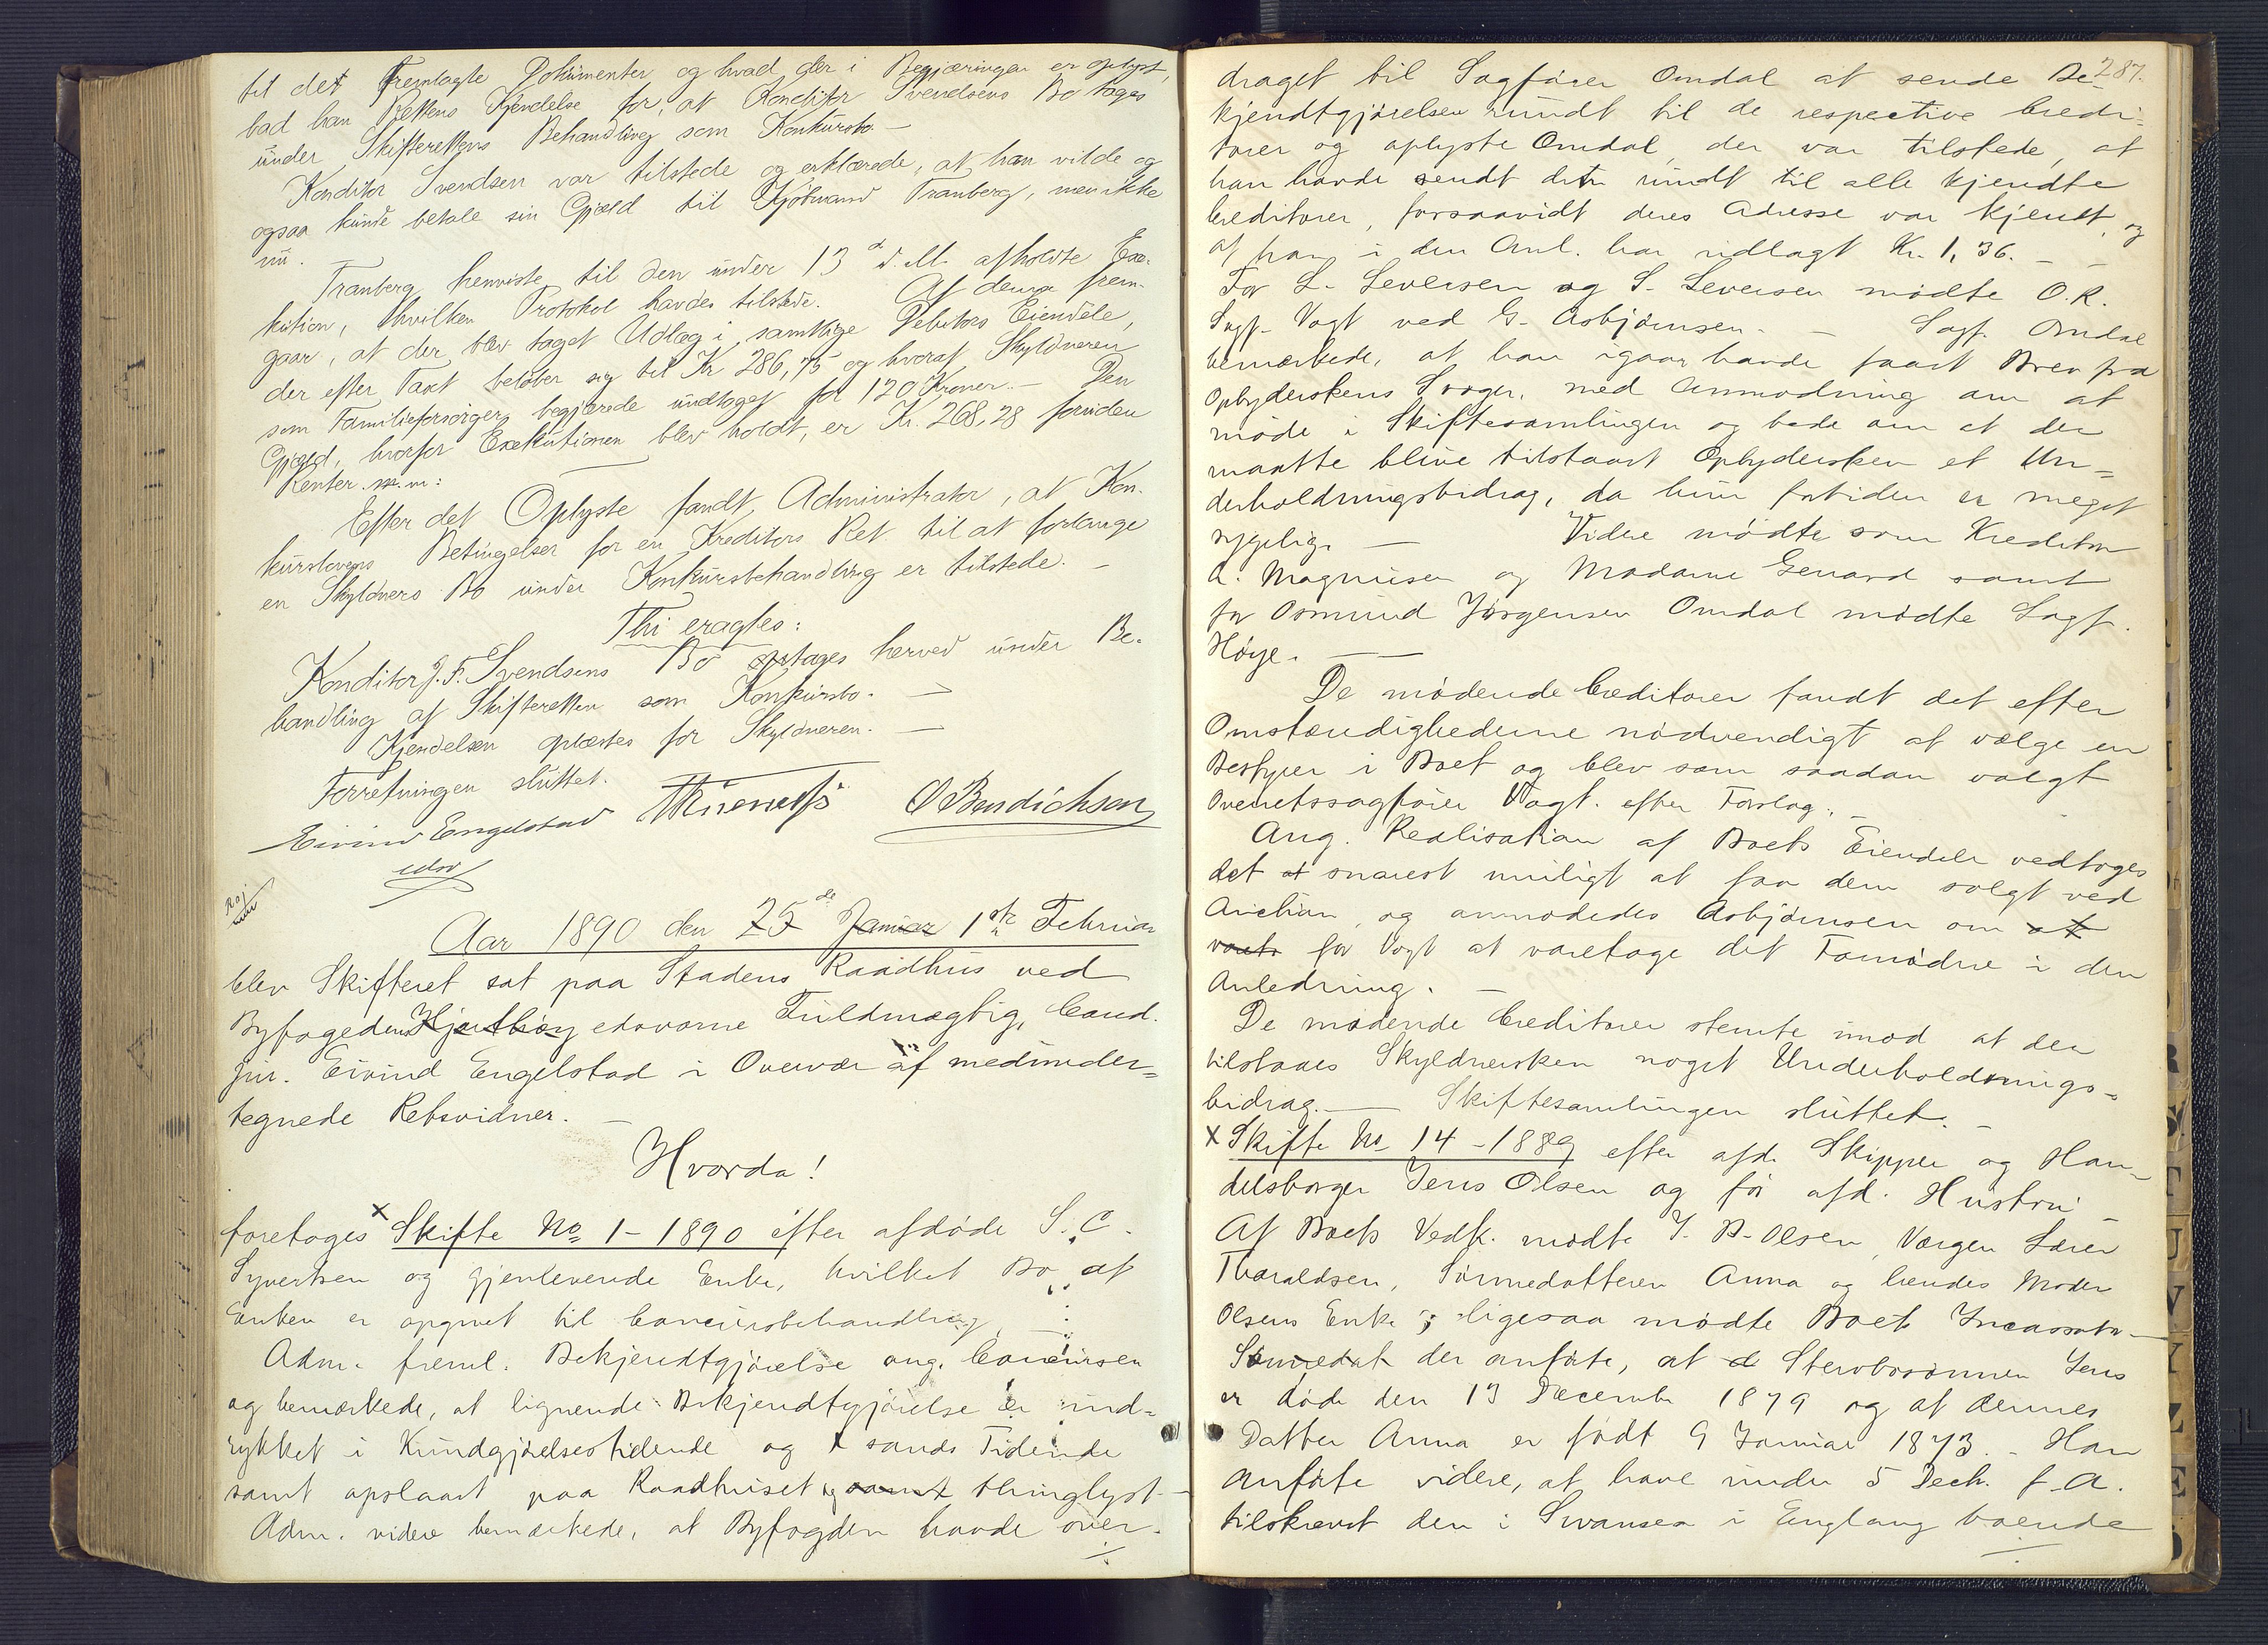 til det fremlagte Dokumenter og hvad der i Begjæringen er oplyst,
bad han Rettens Kjendelse for, at Konditor Svendsens Bo tages
under Skifterettens Behandling som Konkursbo. —
Konditor Svendsen var tilstede og erklærede, at han vilde og
ogsaa kunde betale sin Gjæld til Kjøbmand Tranberg, men ikke
nu.
Tranberg henviste til den under 13 d. M. afholdte Exe-
kution, hvilken Protokol havdes tilstede. Af denne frem-
gaar, at der blev taget Udlæg i samtlige Debitors Eiendele,
der efter Taxt beløber sig til Kr 286,75 og hvoraf Skyldneren
som Familieforsørger begjærede undtaget for 120 Kroner. — Den
Gjæld, hvorfor Exekutionen blev holdt, er Kr. 268,28 foruden
Renter m. m:
Efter det Oplyste fandt Administrator, at Kon-
kurslovens Betingelser for en Kreditors Ret til at forlange
en Skyldners Bo under Konkursbehandling er tilstede. —
Thi eragtes:
Konditor J. F. Svendsens Bo optages herved under Be-
handling af Skifteretten som Konkursbo. —
Kjendelsen oplæstes for Skyldneren. —
Forretningen sluttet.
Eivind Engelstad O Bendichsen
edsv
Aar 1890 den 25 de Januar 1ste Februar
blev Skifteret sat paa Stadens Raadhus ved
Byfogedens Hjorthøy edsvorne Fuldmægtig, Cand.
jur. Eivind Engelstad i Overvær af medunder=
tegnede Retsvidner. —
Hvorda!
foretoges x Skifte No 1 - 1890 efter afdøde S. C.
Syvertsen og gjenlevende Enke, hvilket Bo af
Enken er opgivet til Concursbehandling. —
Adm. freml. Bekjendtgjørelse ang. Concursen
og bemærkede, at lignende Bekjendtgjørelse er ind=
rykket i Kundgjørelsestidende og X sands Tidende
samt opslaaet paa Raadhuset og samt thinglyst —
Adm. videre bemærkede, at Byfogden havde over-
287.
draget til Sagfører Omdal at sende Be-
kjendtgjørelsen rundt til de respective Credi=
torer og oplyste Omdal, der var tilstede, at
han havde sendt den rundt til alle kjendte
Creditorer, forsaavidt deres Adresse var kjendt, og
at han i den Anl. har udlagt Kr. 1,36. — —
For L. Seversen og S. Seversen mødte O.R.
Sagf. Vogt ved G. Asbjørnsen. — Sagf. Omdal
bemærkede, at han igaar havde faaet Brev fra
Opbyderskens Svoger, med Anmodning om at
møde i Skiftesamlingen og bede om at der
maatte blive tilstaaet Opbydersken et Un=
derholdningsbidrag, da hun fortiden er meget
sygelig. — Videre mødte som Kreditor
A. Magnusen og Madame Genard samt
for Osmund Jørgensen Omdal mødte Sagf.
Høye. —
De mødende Creditorer fandt det efter
Omstændighederne nødvendigt at vælge en
Bestyrer i Boet og blev som saadan valgt
Overretssagfører Vogt. efter Forslag. —
Ang. Realisation af Boets Eiendele vedtoges
det at snarest muligt at faa dem solgt ved
Auction, og anmodedes Asbjørnsen om at
for Vogt at varetage det Fornødne i den
Anledning. —
De mødende Creditorer stemte imod at der
tilstaaes Skyldnersken noget Underholdnings-
bidrag. — Skiftesamlingen sluttet. —
x Skifte No 14 - 1889 efter afd. Skipper og Han-
delsborger Jens Olsen og før afd. Hustru —
Af Boets Vedk. mødte J. B. Olsen, Værgen Lærer
Tharaldsen, Sønnedatteren Anna og hendes Moder
Olsens Enke; ligesaa mødte Boets Incassator —
Sønnedat der anførte, at d Stervbosønnen Jens
er døde den 13 December 1879 og at dennes
Datter Anna er født 9 Januar 1873. — Han
anførte videre, at have under 5 Decb. f. A.
tilskrevet den i Swansea i England boende